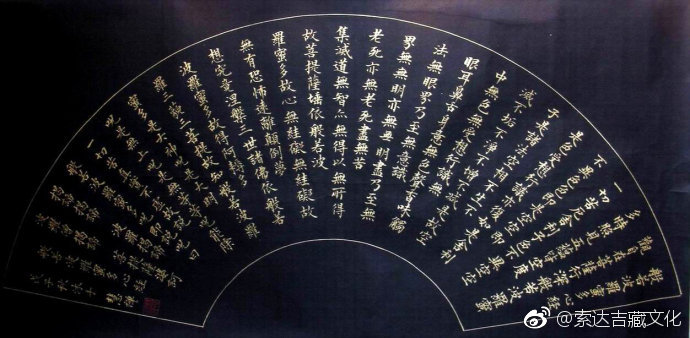 般若波羅蜜多心經
觀自在菩薩行深般若波羅蜜
多時照見五蘊皆空度
一切苦厄舍利子色不異空空
不異色色即是空空
是色受想行識亦復如是舍利
子是諸法空相不生不
滅不垢不淨不增不減是故空
中無色無受想行識無
眼耳鼻舌身意無色聲香味觸
法無眼界乃至無意識
界無無明亦無無明盡乃至無
老死亦無老死盡無苦
集滅道無智亦無得以無所得
故菩提薩埵依般若波
羅蜜多故心無罣礙無罣礙故
無有恐怖遠離顛倒夢
想究竟涅槃三世諸佛依般若
波羅蜜多故得阿耨多
羅三藐三菩提故知般若波羅
蜜多是大神咒是大明
咒是無上咒是無等等咒能除
一切苦真實不虛故說
般若波羅蜜多咒即說咒曰
揭諦揭諦波羅揭諦
般若波羅蜜多心經
@索达吉藏文化